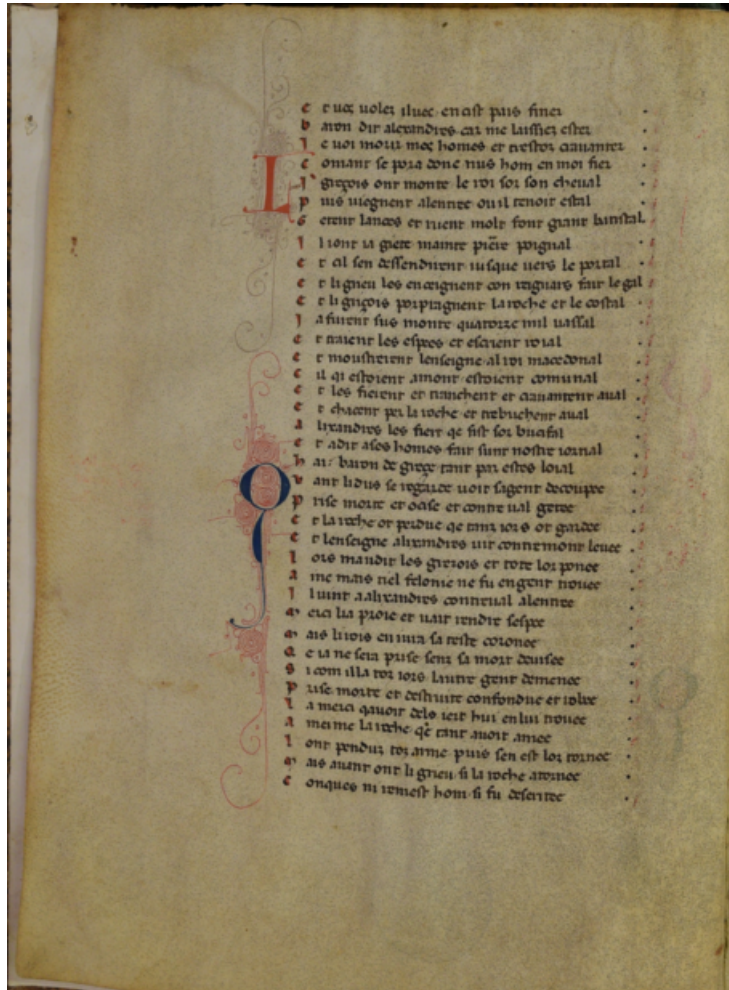 E t vos volez iluec en cist pais finer
B aron dit alexandres car me laissiez ester
I e voi morir mes homes et trestor craventer
C omant se pora donc nus hom en moi fier
L i greçois ont monte le roi sor son cheval
P uis viegnent alentree ou il tenoit estal
G etent lances et ruent molt font grant batistal
I l i ont ia giete mainte piere poignal
E t cil sen deffendirent iusque vers le portal
E t li grieu les enceignent con veignars fait le gal
E t li griçois porpragnent la roche et le costal
I a furent sus monte quatorze mil vassal
E t traient les espees et escrient roial
E t moustrerent lenseigne al roi macedonal
C il qi estoient amont estoient comunal
E t les fierent et tranchent et craventent aval
E t chacent per la roche et trebuchent aval
A lixandres les fiert qe sist sor bucifal
E t a dit a ses homes fait sunt nostre iornal
H ai baron de greçe tant par estes loial
Q vant li dus se regarde voit sa gent decoupee
P rise morte et ocise et contre val getee
E t la roche or perdue qe tanz iors ot gardee
E t lenseigne alixandres vit contremont levee
L ors maudit les grezois et tote lor ponee
A me mais tiel felonie ne fu en gent trovee
I l vint a alixandres contreval alentree
M erci li a proie et vait rendre sespee
M ais li rois en iura sa teste coronee
Q e ia ne sera prise senz sa mort devisee
S i com il la toz iors lautre gent demenee
P rise morte et destruite confondue et robee
L a merci qavoit dels iert hui en lui trovee
A meisme la roche qe tant avoit amee
L ont penduz tot arme puis sen est lor tornee
M ais avant ont li grieu si la roche atornee
C onques ni remest hom si fu deseritee